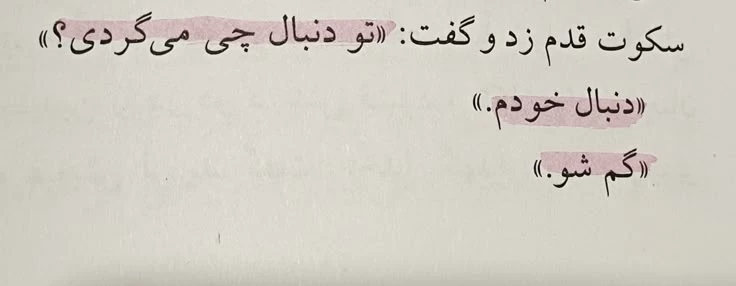 سکوت قدم زد و گفت: «تو دنبال چی می‌گردی؟»
«دنبال خودم.»
«گم شو.»